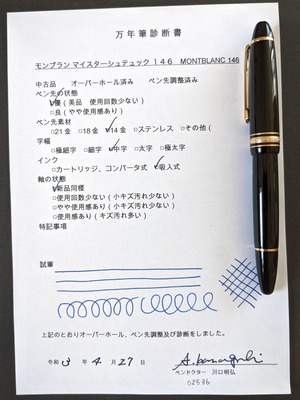 万年筆診断書
モンブラン マイスターシュテュック 146 MONTBLANC 146
中古品 オーバーホール済み ペン先調整済み
ペン先の状態
□優(美品 使用回数少ない)
□良(やや使用感あり)
ペン先素材
□21金 □18金 □14金 □ステンレス □その他(
字幅
□極細字 □細字 □中字 □太字 □極太字
インク
□カートリッジ、コンバータ式 □吸入式
軸の状態
□新品同様
□使用回数少ない(小キズ汚れ少ない)
□やや使用感あり(小キズ汚れ少ない)
□使用感あり(キズ汚れ多い)
特記事項
試筆
上記のとおりオーバーホール、ペン先調整及び診断をしました。
令和 3 年 4 月 27 日
ペンドクター 川口明弘
02536